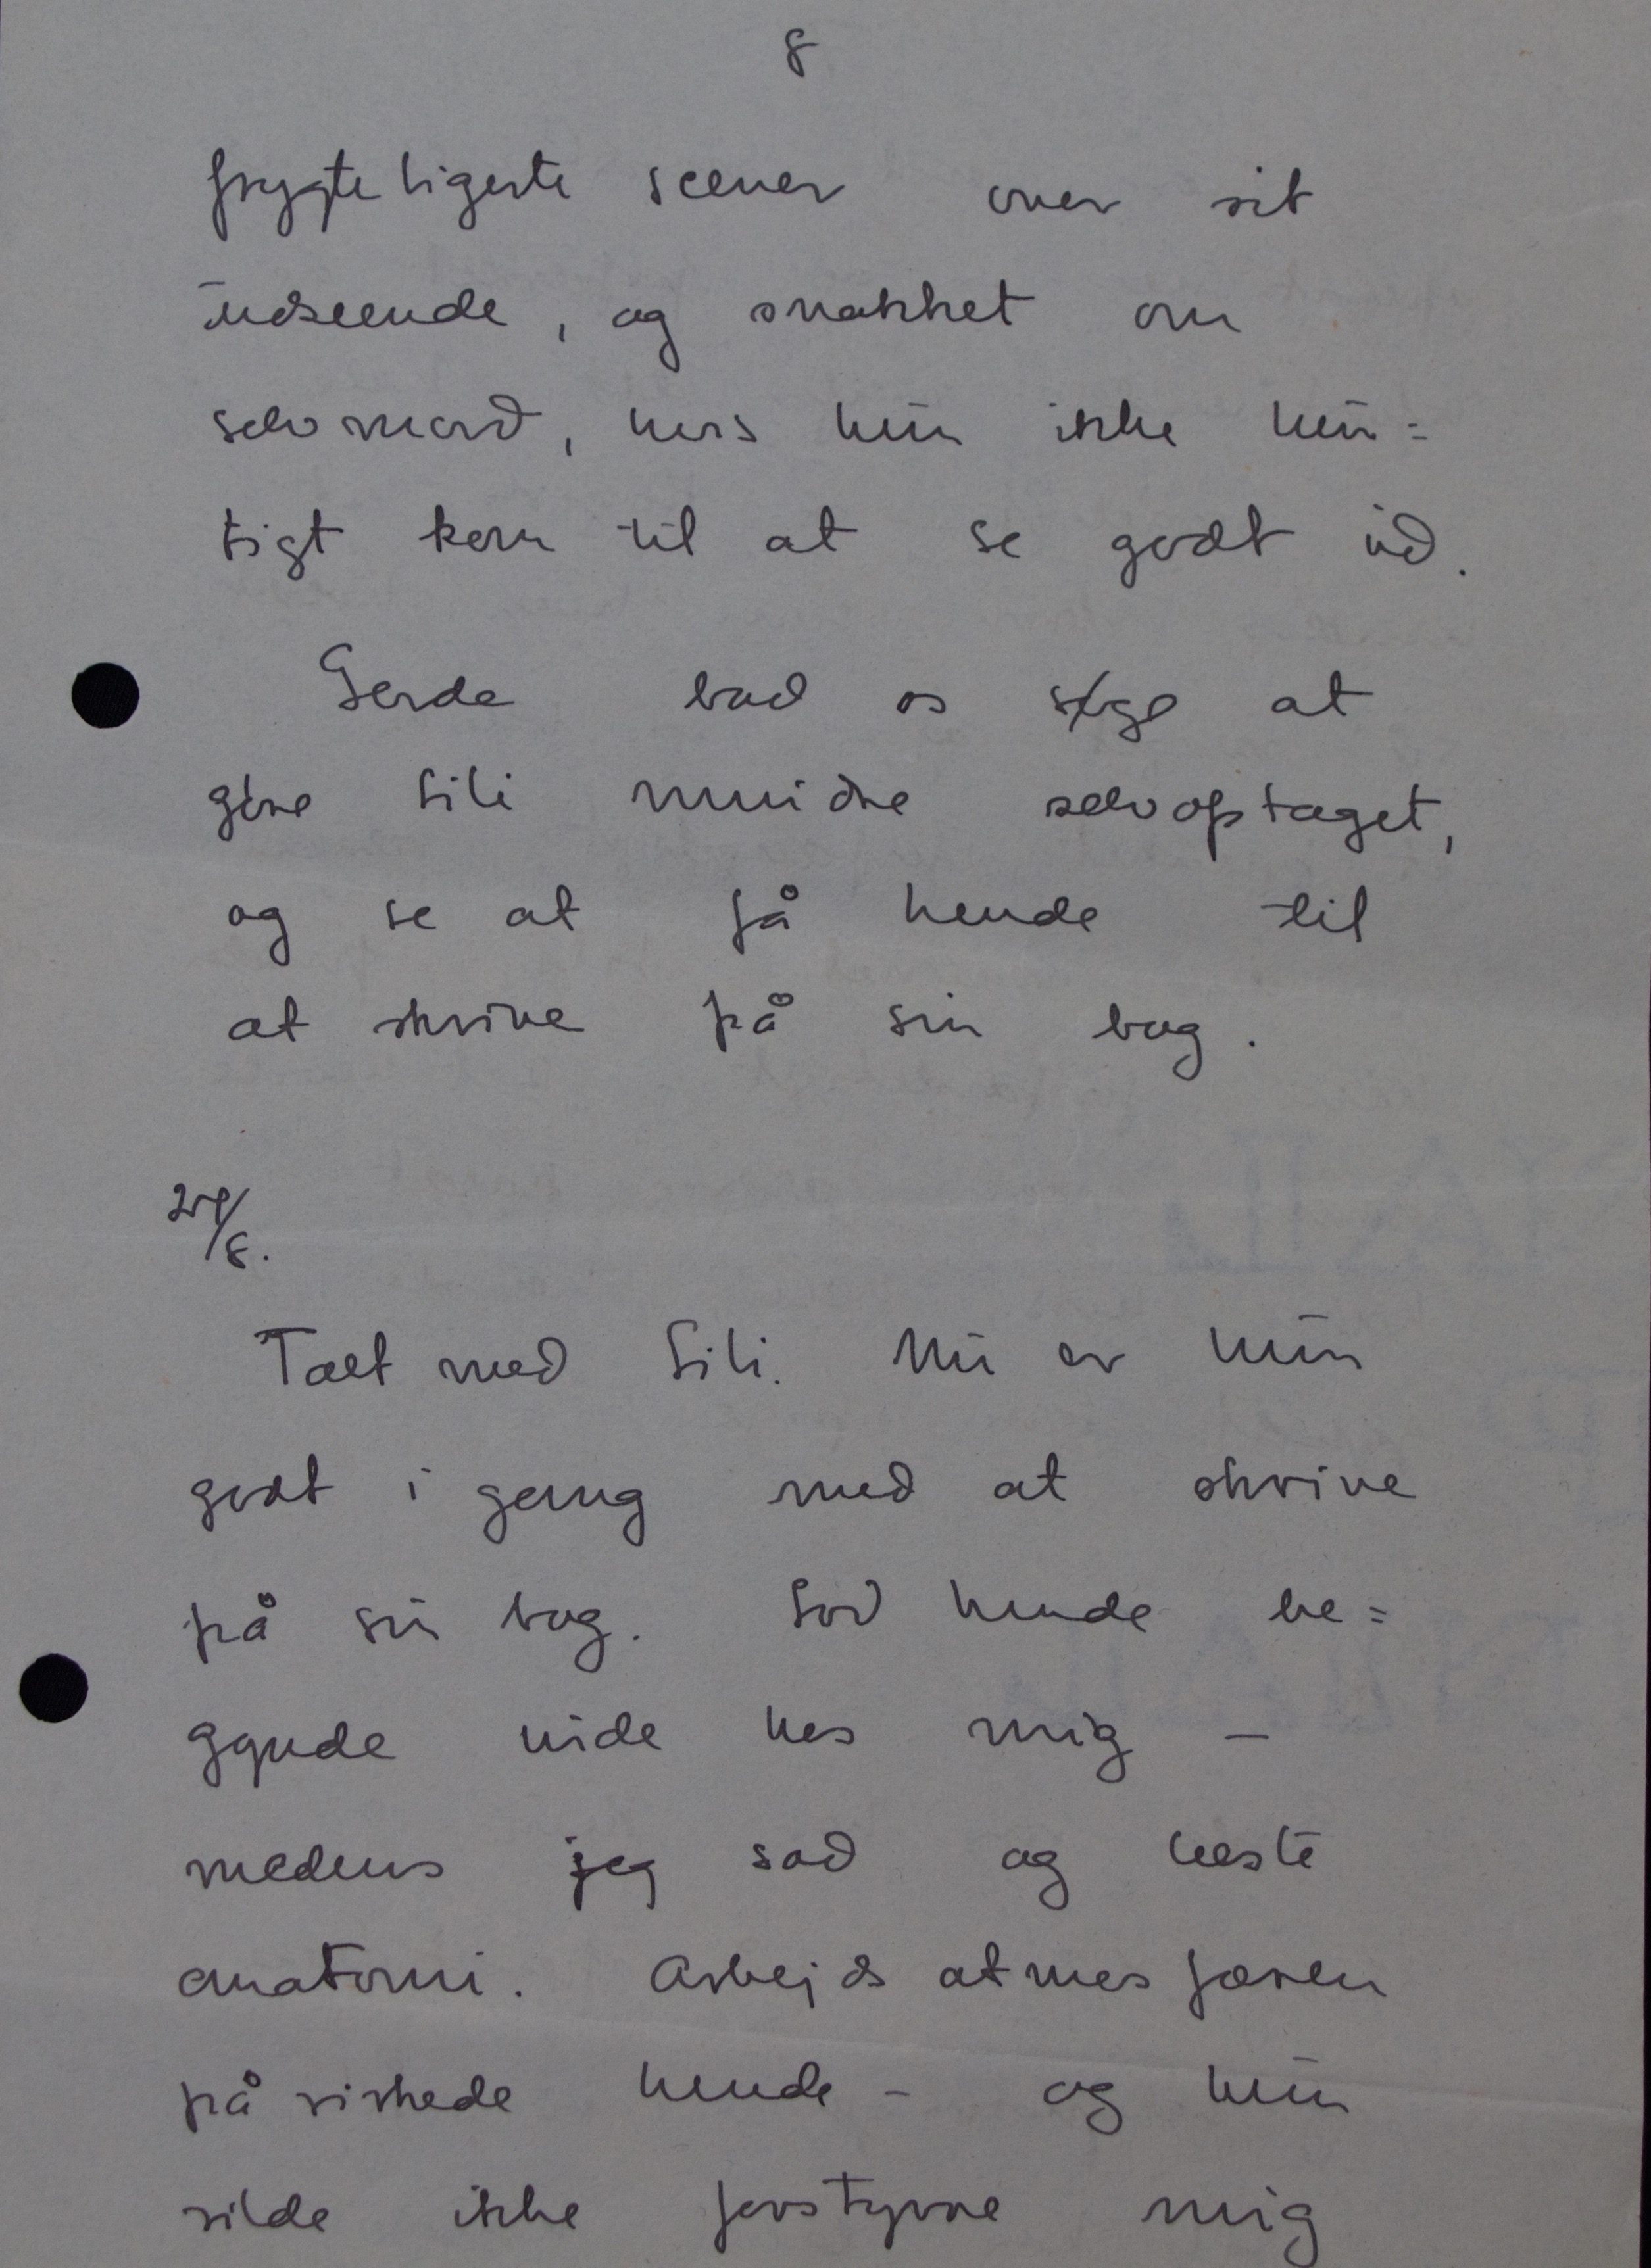 8
frygteligste scener over sit
udseende, og snakket om
selvmord, hvis hun ikke hur=
tigt kom til at se godt ud.
Gerda bad os søge at
gøre Lili mindre selvoptaget,
og se at få hende til
at skrive på sin bog.
Talt med Lili. Nu er hun
godt i gang med at skrive
på sin bog. Lod hende be=
gynde inde hos mig —
medens jeg sad og læste
anatomi. Arbejdsatmosfæren
påvirkede hende - og hun
vilde ikke forstyrre mig